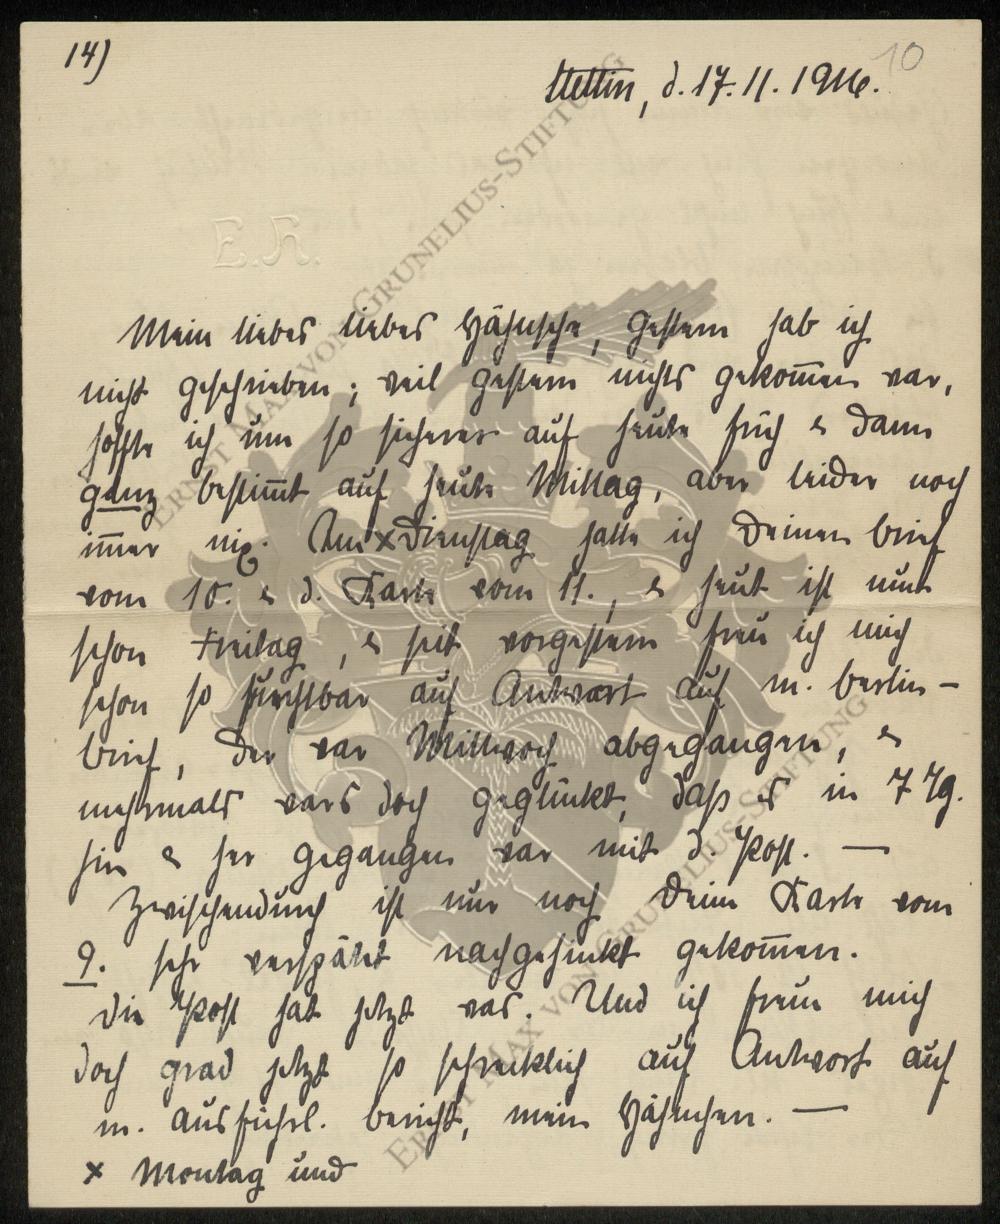 14)
10
Stettin, d. 17. 11. 1916.
E.R.
Mein liebes liebes Hähnsche, gestern hab ich
nicht geschrieben; weil gestern nichts gekom̄en war,
hoffte ich um so sicherer auf heute früh & dann
ganz bestim̄t auf heute Mittag, aber leider noch
im̄er nix. Am x Dienstag hatte ich Deinen Brief
vom 10. & d. Karte vom 11., & heut ist nun
schon Freitag, & seit vorgestern freu ich mich
schon so furchtbar auf Antwort auf m. Berlin-
brief, der war Mittwoch abgegangen, &
mehrmals wars doch geglückt, daß es in 7 Tg.
hin & her gegangen war mit d. Post. —
Zwischendurch ist nur noch Deine Karte vom
9. sehr verspätet nachgehinkt gekom̄en.
Die Post hat jetzt was. Und ich freue mich
doch grad jetzt so schrecklich auf Antwort auf
m. ausführl. Bericht, mein Hähnchen. —
x Montag und
ERNST MAX VON GRUNELIUS-STIFTUNG
ERNST MAX VON GRUNELIUS-STIFTUNG